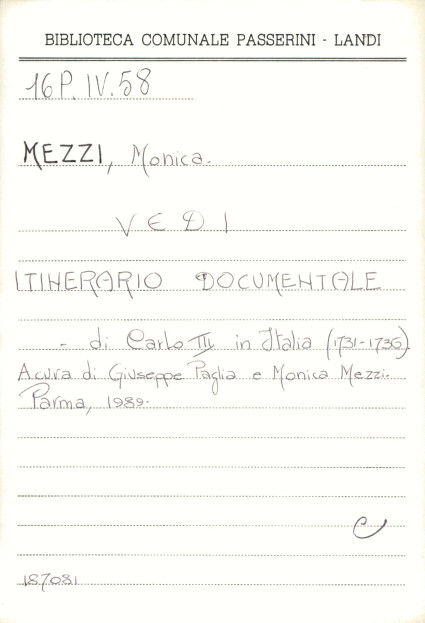 BIBLIOTECA COMUNALE PASSERINI - LANDI
16 P. IV. 58
MEZZI, Monica.
VEDI
ITINERARIO DOCUMENTALE
- di Carlo III in Italia (1731-1736)
A cura di Giuseppe Paglia e Monica Mezzi.
Parma, 1989.
C
187081